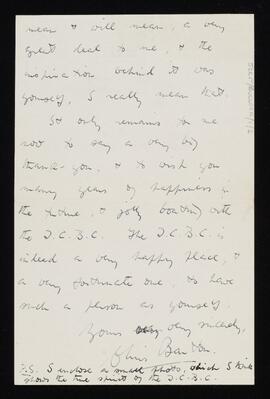 mean & will mean, a very
great deal to me, & the
inspiration behind it was
yourself, I really mean that.
It only remains to me
now to say a very big
thank-you, & to wish you
many years of happiness in
the future, & jolly boating with
the I.C.B.C. The I.C.B.C. is
indeed a very happy place, &
a very fortunate one, to have
such a person as yourself.
Yours very sincerely,
P.S. I enclose a small photo, which I think
shows the true spirit of the I.C.B.C.